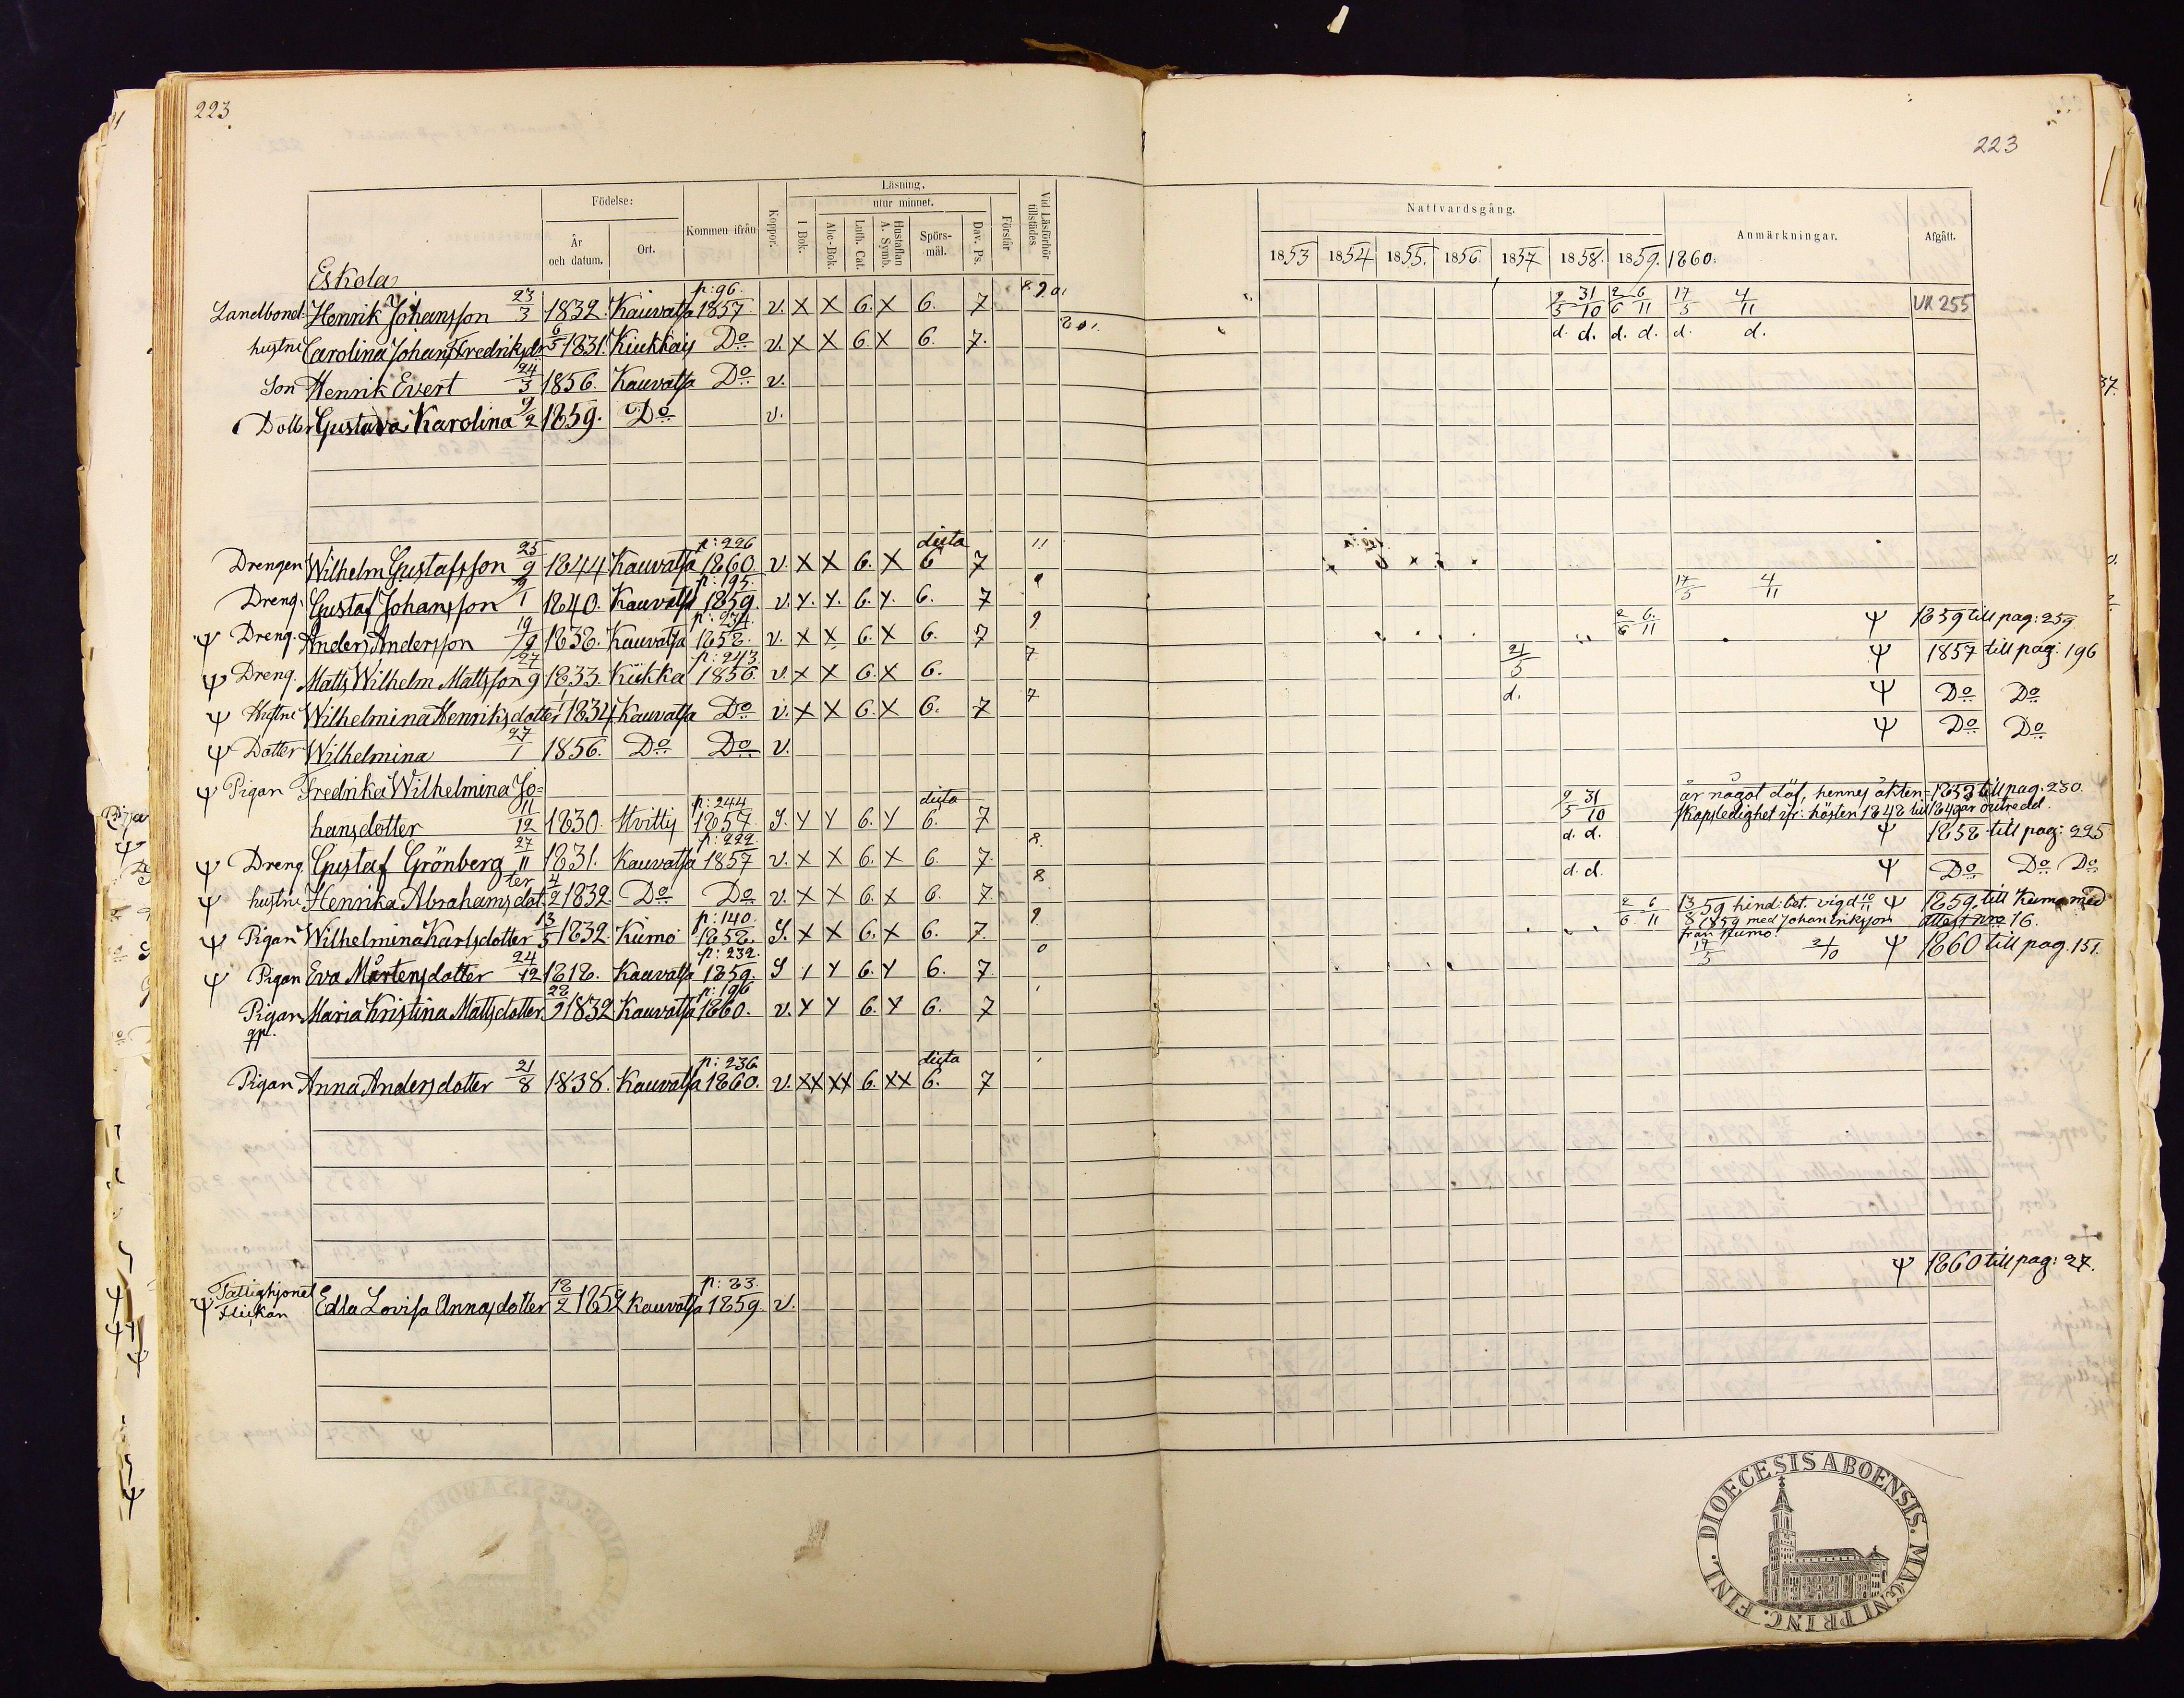 223
223
Födelse:
Läsning.
utur minnet.
År
och datum.
Ort.
Kommen ifrån
Koppor.
I Bok.
Abc-Bok.
Luth. Cat.
Hustaflan
A. Symb.
Spörs-
mål.
Dav. Ps.
Förstår
Vid Läsförhör
tillstädes.
Nattvardsgång.
Anmärkningar.
Afgått.
1853 1854 1855. 1856. 1857 1858. 1859. 1860.
Eskola
Landbond. Henrik Johansson 23/3 1832. Kauvatsa p: 96. 1857. v. X X 6. X 6. 7 31/10 2/6 6/11 17/5 4/11 UK 255
hustru Carolina Johans Fredriksdr 6/5 1831. Kiukkais Do v. X X 6. X 6. 7. d. d. d. d. d. d.
Son Henrik Evert 24/3 1856. Kauvatsa Do v.
Dotter Gustava Karolina 9/2 1859. Do v.
Drengen Wilhelm Gustafsson 25/9 1844 Kauvatsa p: 226 1860 v. X X 6. X 6 7
Dreng. Gustaf Johansson 1840. Kauvatsa p: 195. 1859. v. Y. Y. 6. Y. 6. 7 17/5 4/11
Ψ Dreng. Anders Andersson 19/9 1838. Kauvatsa p: 234. 1858. v. X X 6. X 6. 7 2/6 6/11 Ψ 1859 till pag: 259
Ψ Dreng. Matts Wilhelm Mattsson 27/9 1833 Kiukka p: 243. 1856. v. X X 6. X 6. 21/5 Ψ 1857 till pag: 196
Ψ Hustru Wilhelmina Henriksdotter 1834 Kauvatsa Do v. X X 6. X 6. 7 d. Ψ Do Do
Ψ Dotter Wilhelmina 27/1 1856. Do Do v. Ψ Do Do
Ψ Pigan Fredrika Wilhelmina Jo=
hansdotter 11/12 1830. Hvittis p: 244 1857. S. Y Y 6. Y 6. 7 9/5 31/10 är något döf, hennes äkten= 1859 till pag: 230.
skapsledighet ifr: hösten 1848 till 1849 är outredd.
Ψ Dreng. Gustaf Grönberg 27/11 1831. Kauvatsa p: 222. 1857 v. X X 6. X 6. 7. d. d. Ψ 1858 till pag: 225
Ψ hustru Henrika Abrahamsdotter 4/2 1832. Do Do v. X X 6. X 6. 7. d. d. Ψ Do Do Do
Ψ Pigan Wilhelmina Karlsdotter 13/5 1832. Kumo p: 140. 1858. S. X X 6. X 6. 7. 2/6 6/11 13/8 59 hind: bet. vigd 10/11 Ψ 1859. till Kumo med
1859 med Johan Eriksson attest nro 16.
från Kumo.
Ψ Pigan Eva Mårtensdotter 24/12 1818. Kauvatsa p: 232. 1859. S Y 6. Y 6. 7 17/5 2/10 Ψ 1860 till pag. 151.
Pigan Maria Kristina Mattsdotter 28/9 1832 Kauvatsa p: 196 1860. v. Y Y 6. Y 6. 7
Pigan Anna Andersdotter 21/8 1838. Kauvatsa p: 236. 1860. v. XX XX 6. XX 6. 7
Ψ Fattighjonet
Flickan Edla Lovisa Annasdotter 18/2 1852 Kauvatsa p: 83. 1859. v. Ψ 1860 till pag: 27.
DIOECESIS ABOENSIS. MAGNI PRINC. FINL.